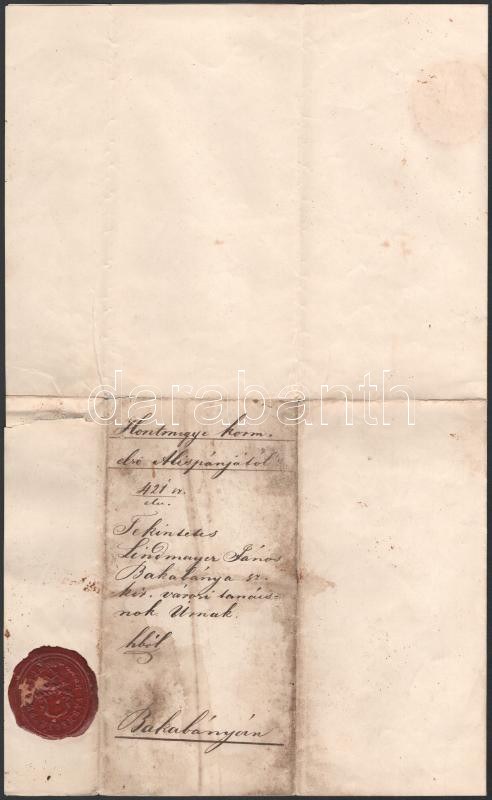 darabanth
Hontmegye korm.
első Alispánjától
421 sz.
eln.
Tekintetes
Lindmayer János
Bakabánya sz.
kir. városi tanács=
nok Urnak.
hből
Bakabányán